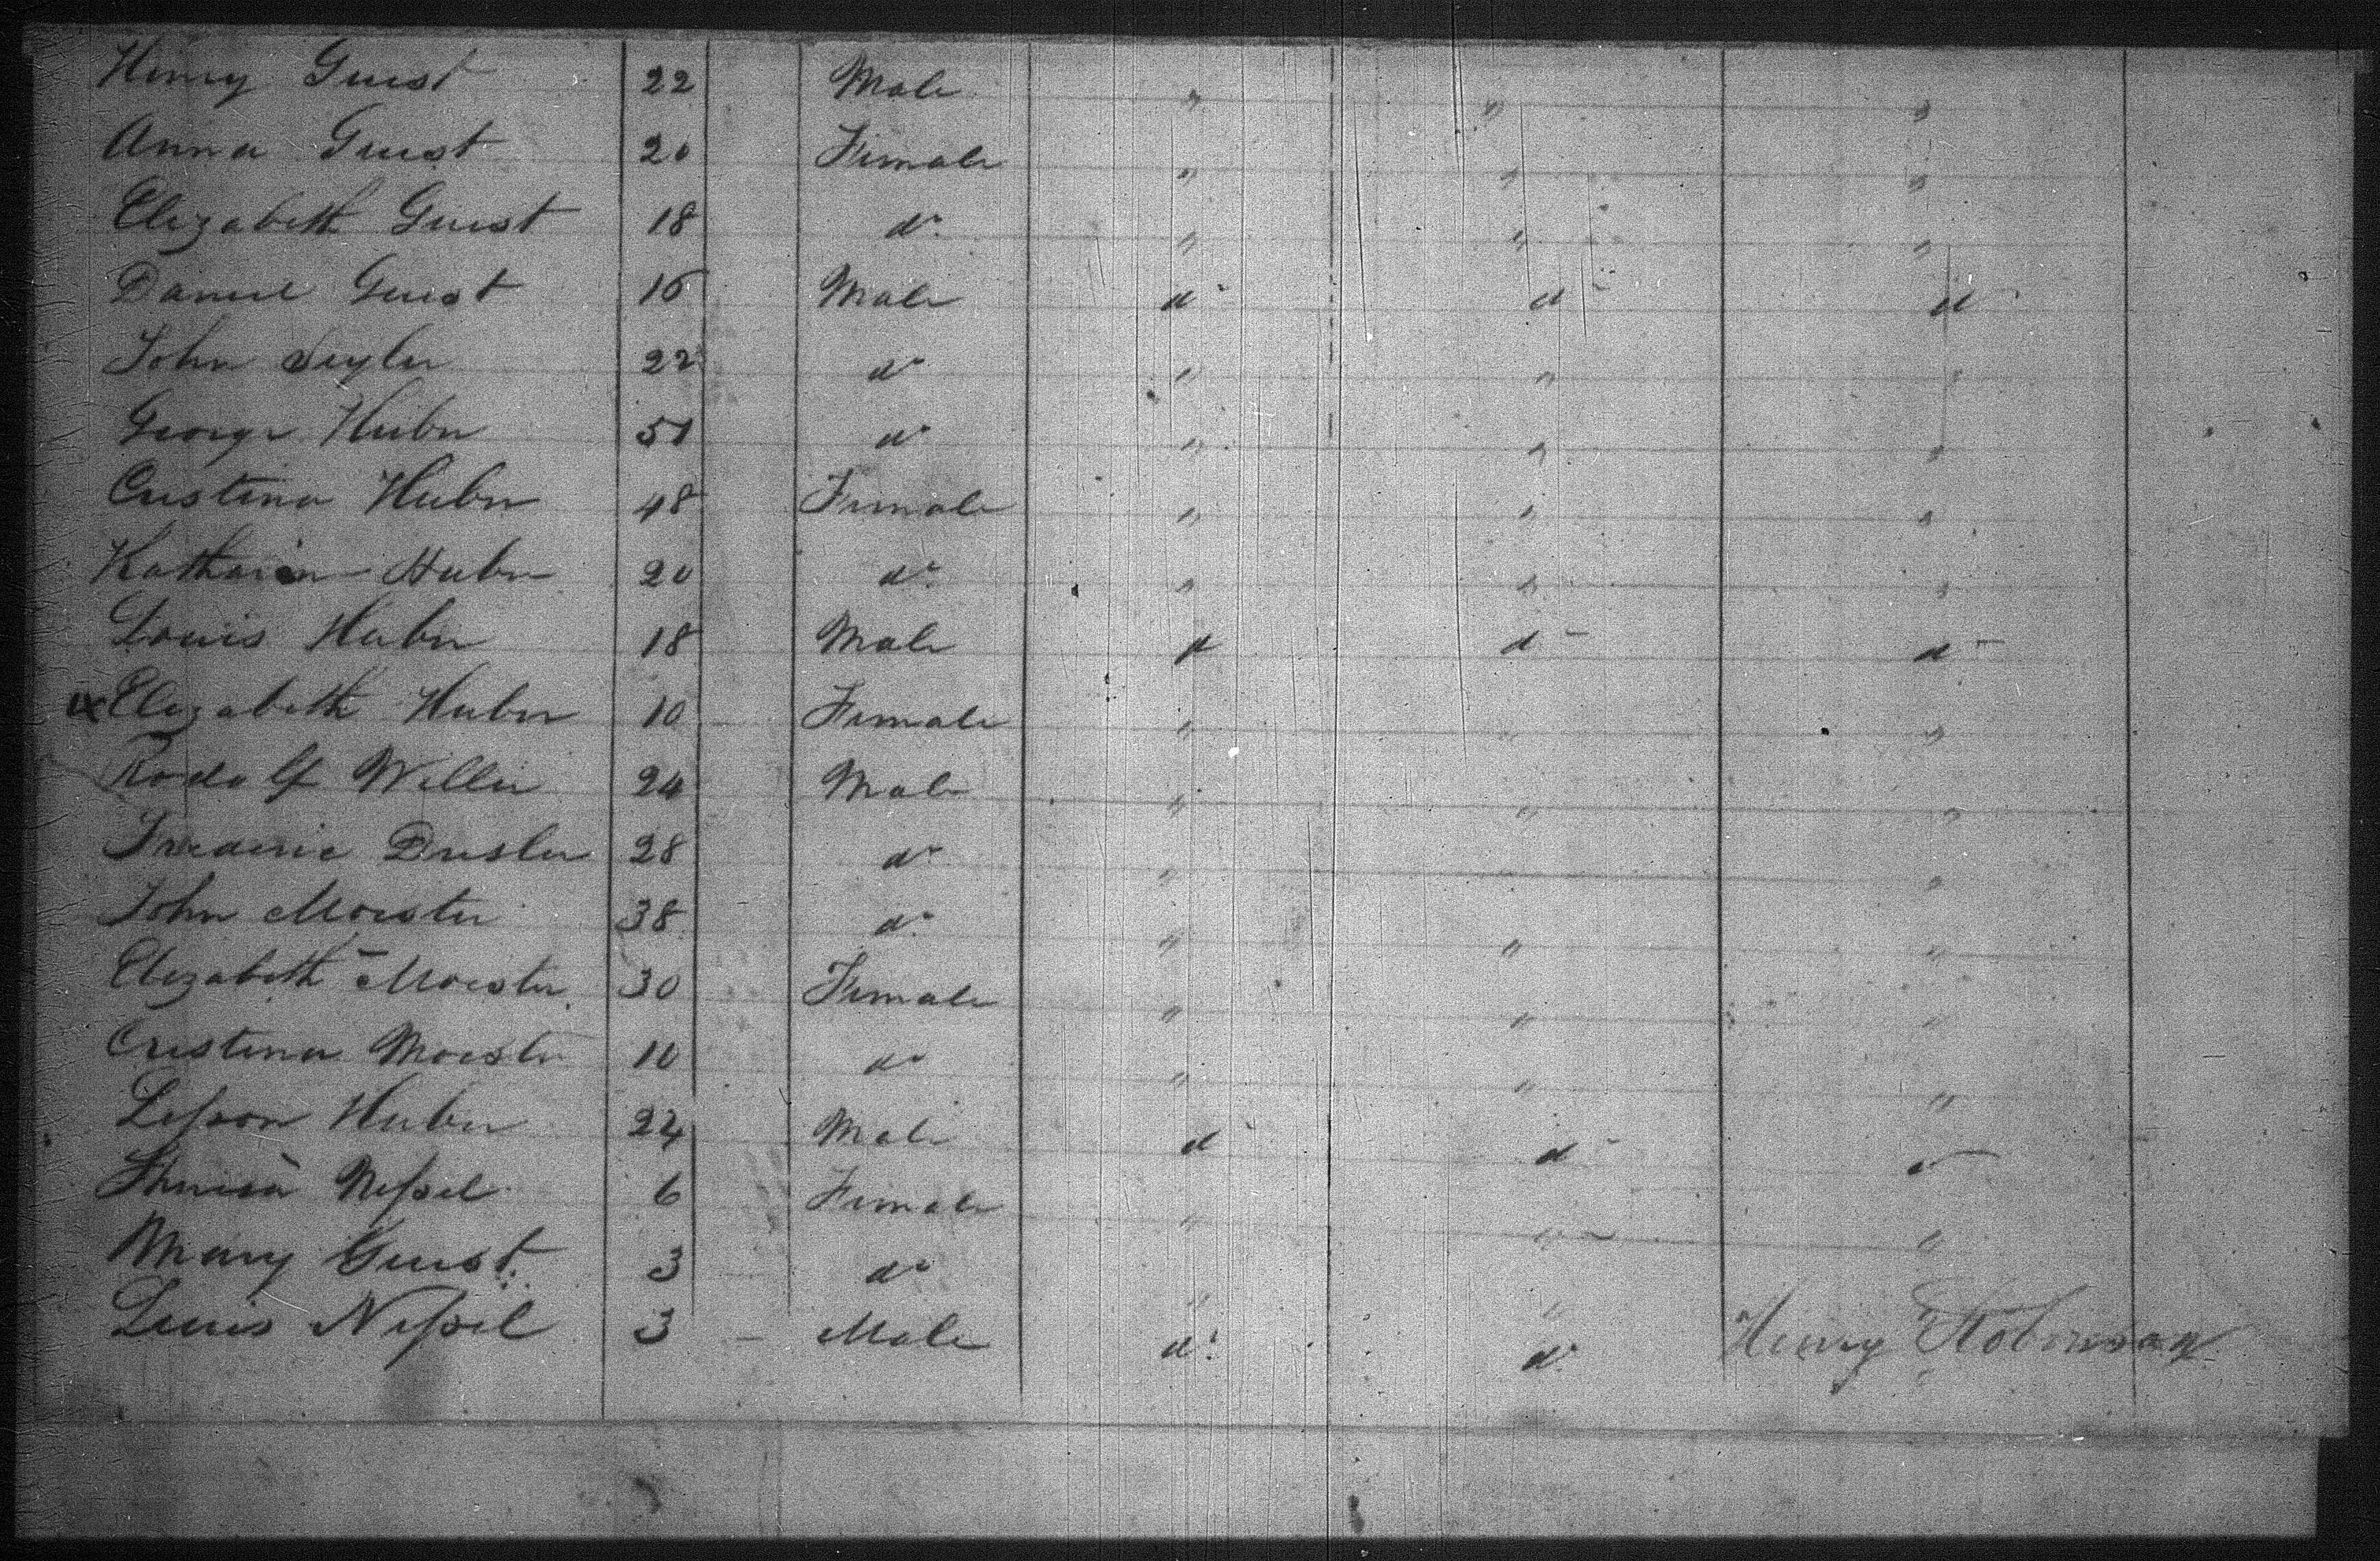 Henry Guist 22 Male " " "
Anna Guist 20 Female " " "
Elizabeth Guist 18 do " " "
Daniel Guist 16 Male do do do
John Seyler 22 do " " "
George Huber 51 do " " "
Cristina Huber 48 Female " " "
Katharin Huber 20 do " " "
Louis Huber 18 Male do do do
Elizabeth Huber 10 Female " " "
Rodolf Willer 24 Male " " "
Frederic 28 do " " "
John Moister 38 do " " "
Elizabeth Moister 30 Female " " "
Cristina Moister 10 do " " "
Huber 24 Male do do do
Neſsel 6 Female " " "
Mary Guist 3 do " "
Luis Neſsel 3 Male do do Henry